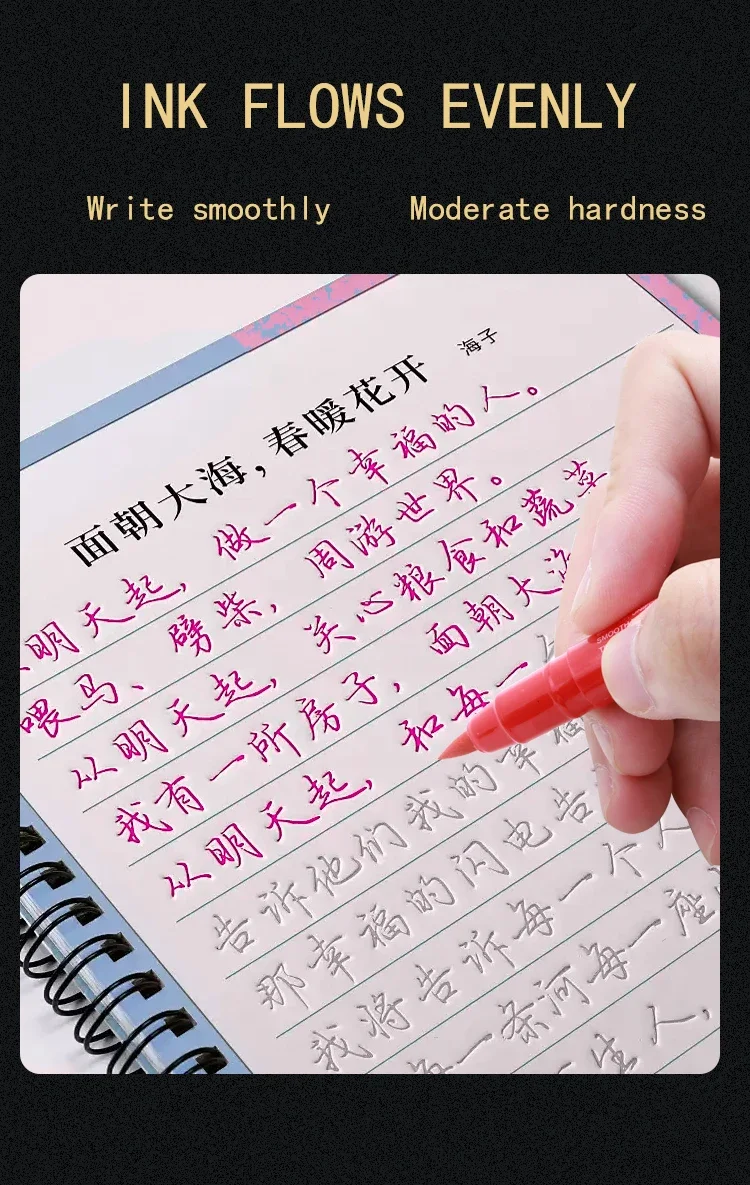 INK FLOWS EVENLY
Write smoothly Moderate hardness
面朝大海，春暖花开 海子
明天起，做一个幸福的人。
喂马、劈柴，周游世界。
从明天起，关心粮食和蔬菜
我有一所房子，面朝大海
从明天起，和每一个
告诉他们我的幸福
那幸福的闪电告
我将告诉每一个人
每一条河每一座
一生人，
SMOOTH